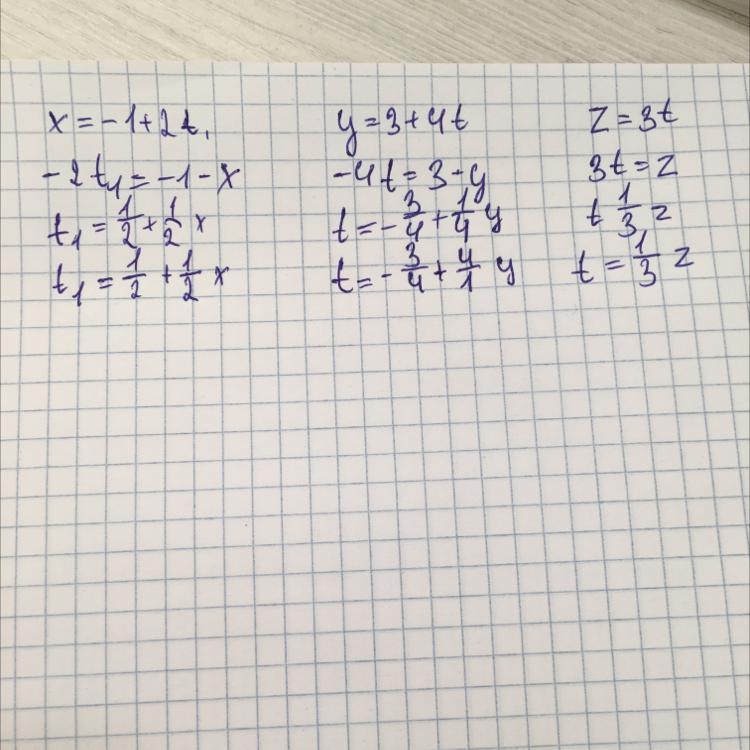 x = -1 + 2t,
-2t₁ = -1 - x
t₁ = 1/2 + 1/2 x
t₁ = 1/2 + 1/2 x
y = 3 + 4t
-4t = 3 - y
t = - 3/4 + 1/4 y
t = - 3/4 + 4/1 y
z = 3t
3t = z
t 1/3 z
t = 1/3 z